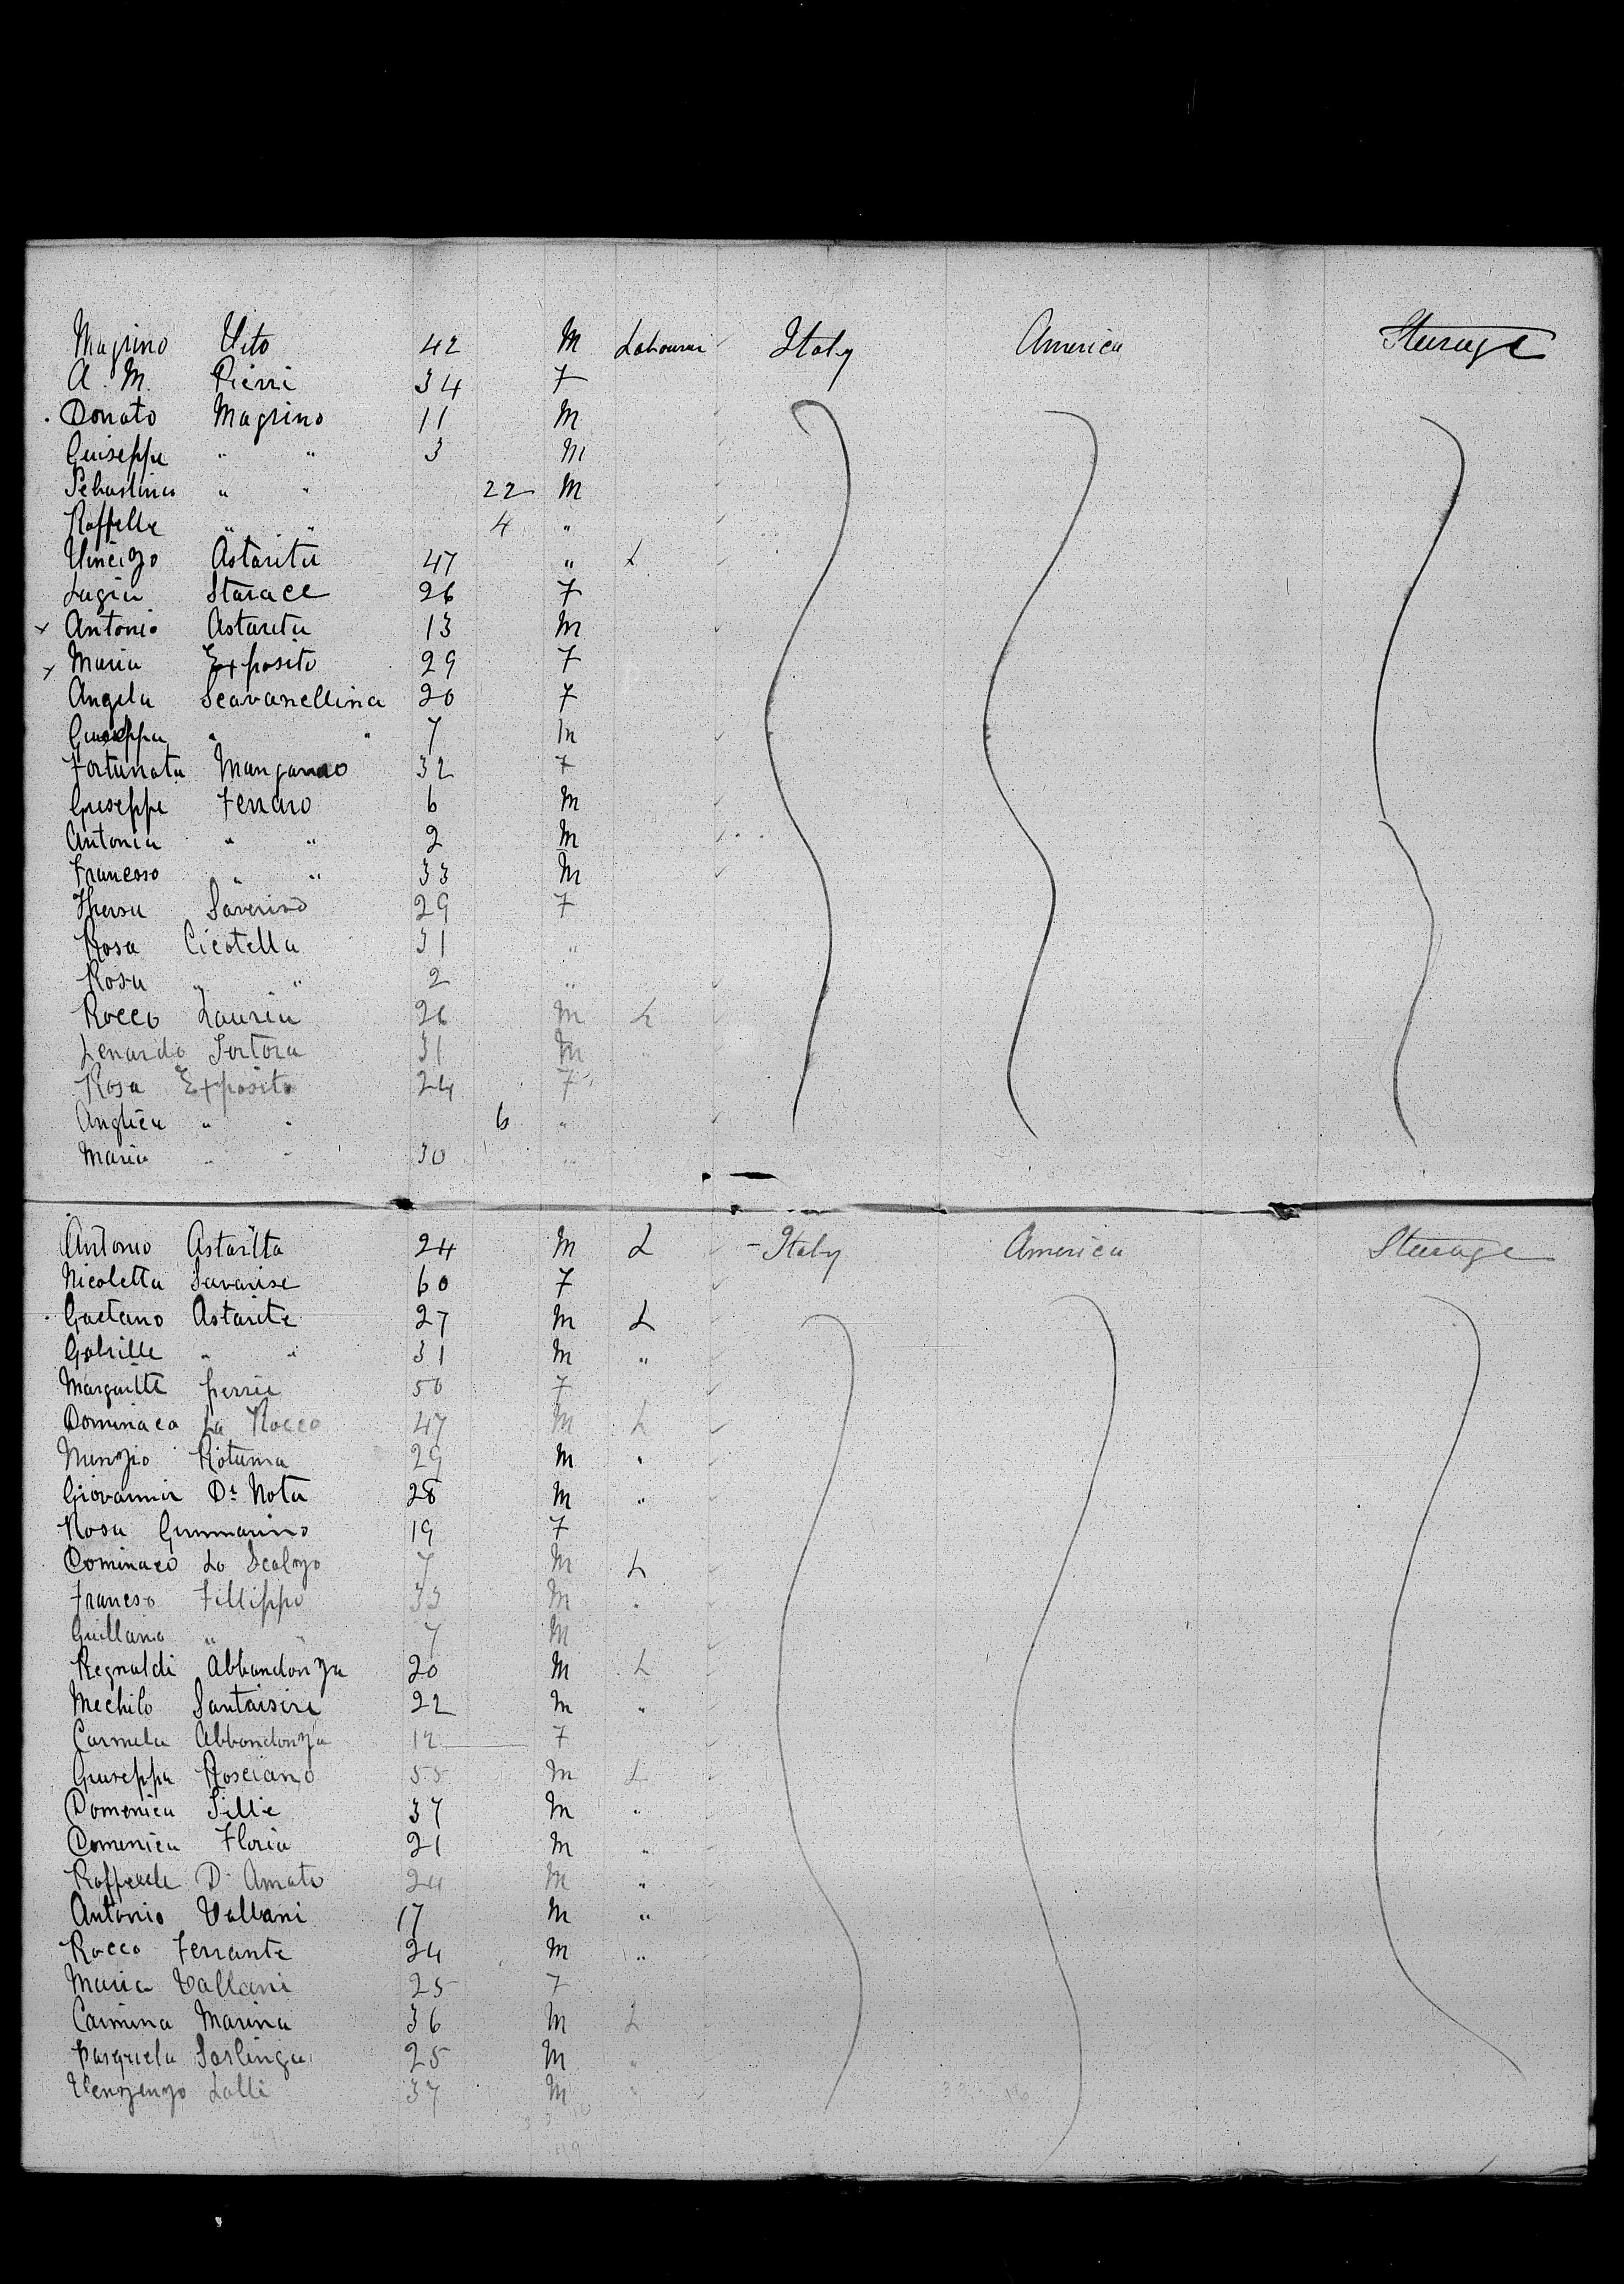 Magrino Vito 42 M Labourer Italy America Steerage
A. M. Pierri 34 F
Donato Magrino 11 M
Guiseppe " " 3 M
Sebastino " " 22 M
Raffelle " " 4 "
Vincizo Astarita 47 " L
Lugia Starace 26 F
x Antonio Astarita 13 M
x Maria Exposito 29 F
Angela Scavanellina 20 F
Guiseppa " " 7 M
Fortunata Manganao 32 F
Guiseppe Ferraro 6 M
Antonia " " 2 M
Francoso " " 33 M
Theresa Saverino 29 F
Rosa Cicotella 31 "
Rosa " " 2 "
Rocco Lauria 26 M L
Lenardo Tortora 31 M "
Rosa Exposito 24 F
Anglica " " 6 "
Maria " " 30 "
Antonio Astaritta 24 M L Italy America Steerage
Nicoletta Savarise 60 F
Gaetano Astarite 27 M L
Gabrille " " 31 M "
Marguitte perrie 50 F
Dominaco La Rocco 47 M L
Nunzio Rotunna 29 M "
Giovannia Di Nota 28 M "
Rosa Gummarino 19 F
Dominaco Lo Scalzo 7 M L
Franceso Fillippo 33 M "
Guillamo " " 7 M
Regnaldi Abbandonza 20 M L
Mechilo Santaisiri 22 M "
Carmela Abbandonza 12 F
Guiseppa Rosciano 55 M L
Domenica Sillie 37 M "
Domenica Floria 21 M "
Raffaele D. Amato 24 M "
Antonio Vallani 17 M "
Rocco Ferrante 24 M "
Maria Vallani 25 F
Carmina Marina 36 M L
Pasquela Soslinga 25 M "
Venzenzo Lalli 37 M "